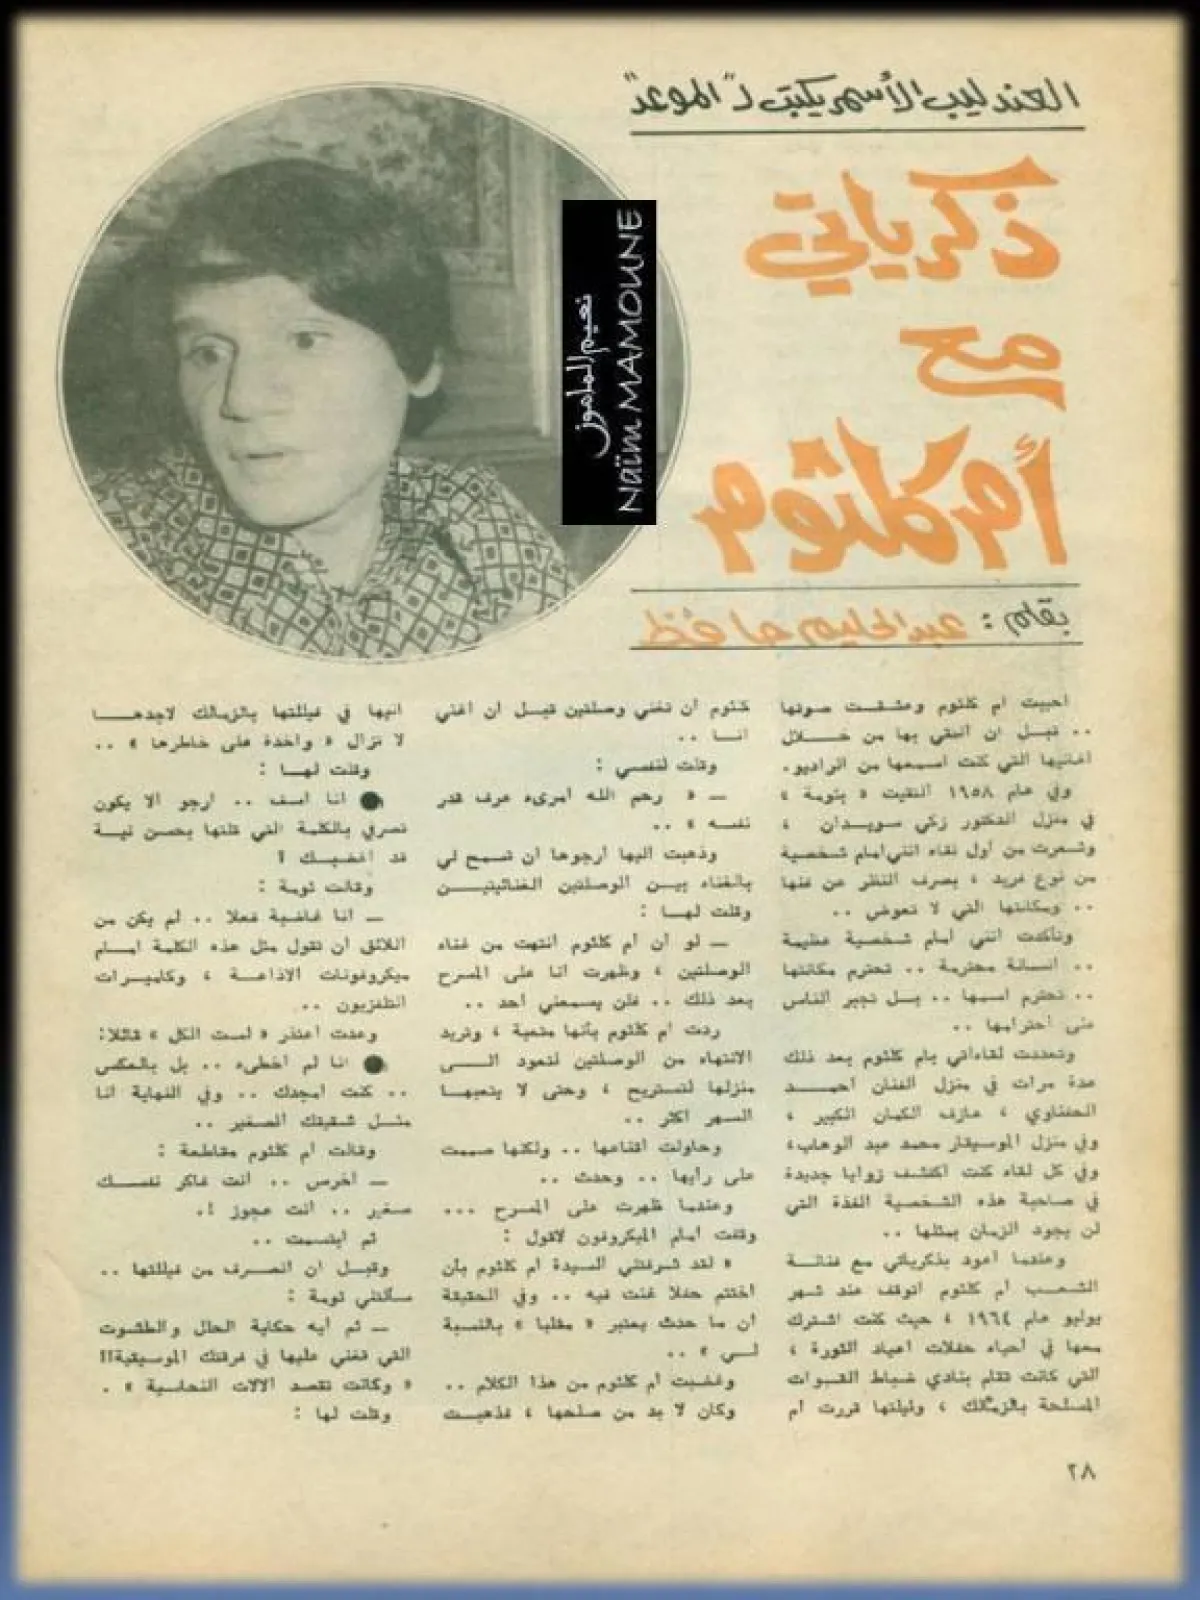 العندليب الأسمر يكتب لـ "الموعد"
ذكرياتي
مع
أم كلثوم
بقلم : عبد الحليم حافظ
نعيم المامون
Naïm MAMOUNE
احببت ام كلثوم وعشقت صوتها
.. قبل ان التقي بها من خلال
اغانيها التي كنت اسمعها من الراديو.
وفي عام ١٩٥٨ التقيت « بثومة »
في منزل الدكتور زكي سويدان ،
وشعرت من أول لقاء انني امام شخصية
من نوع فريد ، بصرف النظر عن فنها
.. ومكانتها التي لا تعوض ..
وتأكدت انني امام شخصية عظيمة
.. انسانة محترمة .. تحترم مكانتها
.. تحترم اسمها .. بل تجبر الناس
على احترامها ..
وتعددت لقاءاتي بام كلثوم بعد ذلك
عدة مرات في منزل الفنان احمد
الحفناوي ، عازف الكمان الكبير ،
وفي منزل الموسيقار محمد عبد الوهاب،
وفي كل لقاء كنت اكتشف زوايا جديدة
في صاحبة هذه الشخصية الفذة التي
لن يجود الزمان بمثلها ..
وعندما اعود بذكرياتي مع فنانة
الشعب ام كلثوم اتوقف عند شهر
يوليو عام ١٩٦٤ ، حيث كنت اشترك
معها في احياء حفلات اعياد الثورة ،
التي كانت تقام بنادي ضباط القوات
المسلحة بالزمالك ، وليلتها قررت ام
كلثوم ان تغني وصلتين قبل ان اغني
انا ..
وقلت لنفسي :
ــ « رحم الله امرىء عرف قدر
نفسه » ..
وذهبت اليها ارجوها ان تسمح لي
بالغناء بين الوصلتين الغنائيتين
وقلت لها :
ــ لو ان ام كلثوم انتهت من غناء
الوصلتين ، وظهرت انا على المسرح
بعد ذلك .. فلن يسمعني احد ..
ردت ام كلثوم بأنها متعبة ، وتريد
الانتهاء من الوصلتين لتعود الى
منزلها لتستريح ، وحتى لا يتعبها
السهر اكثر ..
وحاولت اقناعها .. ولكنها صممت
على رأيها .. وحدث ..
وعندما ظهرت على المسرح ...
وقفت امام الميكروفون لاقول :
« لقد شرفتني السيدة ام كلثوم بأن
اختتم حفلا غنت فيه .. وفي الحقيقة
ان ما حدث يعتبر « مقلبا » بالنسبة
لي » ..
وغضبت ام كلثوم من هذا الكلام ..
وكان لا بد من صلحها ، فذهبت
اليها في فيللتها بالزمالك لاجدها
لا تزال « واخدة على خاطرها » ..
وقلت لها :
● انا اسف .. ارجو الا يكون
تصرفي بالكلمة التي قلتها بحسن نية
قد اغضبك !
وقالت ثومة :
ــ انا غاضبة فعلا .. لم يكن من
اللائق ان تقول مثل هذه الكلمة امام
ميكروفونات الاذاعة ، وكاميرات
التلفزيون ..
وعدت اعتذر « لست الكل » قائلا:
● انا لم اخطىء .. بل بالعكس
.. كنت امجدك .. وفي النهاية انا
مثل شقيقك الصغير ..
وقالت ام كلثوم مقاطعة :
ــ اخرس .. انت فاكر نفسك
صغير .. انت عجوز !.
ثم ابتسمت ..
وقبل ان انصرف من فيللتها ..
سألتني ثومة :
ــ ثم ايه حكاية الحلل والطشوت
التي تغني عليها في فرقتك الموسيقية!!
« وكانت تقصد الالات النحاسية » .
وقلت لها :
٢٨